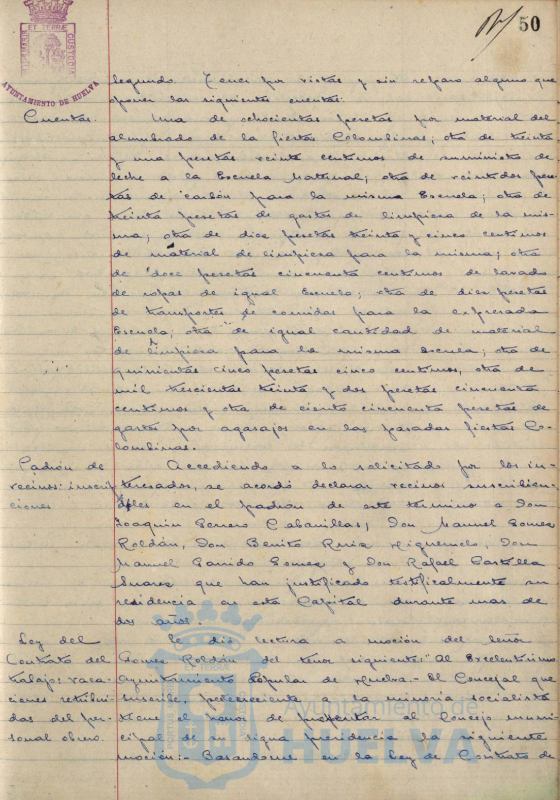 50
AYUNTAMIENTO DE HUELVA
segundo. Tener por vistas y sin reparo alguno que
oponer las siguientes cuentas.
Cuentas. Una de ochocientas pesetas por material del
alumbrado de la fiestas Colombinas; otra de treinta
y una pesetas veinte centimos de suministro de
leche a la Escuela Maternal; otra de veintidos pese-
tas de carbón para la misma Escuela; otra de
treinta pesetas de gastos de limpieza de la mis-
ma; otra de diez pesetas treinta y cinco centimos
de material de limpieza para la misma; otra
de doce pesetas cincuenta centimos de lavado
de ropas de igual Escuela; otra de diez pesetas
de transportes de comidas para la expresada
Escuela; otra de igual cantidad de material
de limpieza para la misma escuela; otra de
quinientas cinco pesetas cinco centimos, otra de
mil trescientas treinta y dos pesetas cincuenta
centimos y otra de ciento cincuenta pesetas de
gastos por agasajos en las pasadas fiestas Co-
lombinas.
Padrón de vecinos: inscrip-
ciones
Accediendo a lo solicitado por los in-
teresados, se acordó declarar vecinos
en el padrón de este termino a Don
Joaquin Cabanillas, Don Manuel Gomez
Roldán, Don Benito Ruiz Don
Manuel Garrido Gomez y Don Rafael
Suarez que han justificado testificalmente su
residencia en esta Capital durante mas de
dos años.
Ley del
Contrato del
trabajo: vaca-
ciones retribui-
das del per-
sonal obrero.
Se dio lectura a moción del señor
Gomez Roldán del tenor siguiente: "Al Excelentisimo
Ayuntamiento Popular de Huelva.- El Concejal que
suscribe, perteneciente a la minoria socialista
tiene el honor de presentar al Concejo muni-
cipal de su digna presidencia la siguiente
moción:- Basandome en la Ley de Contrato de
Ayuntamiento de
HUELVA